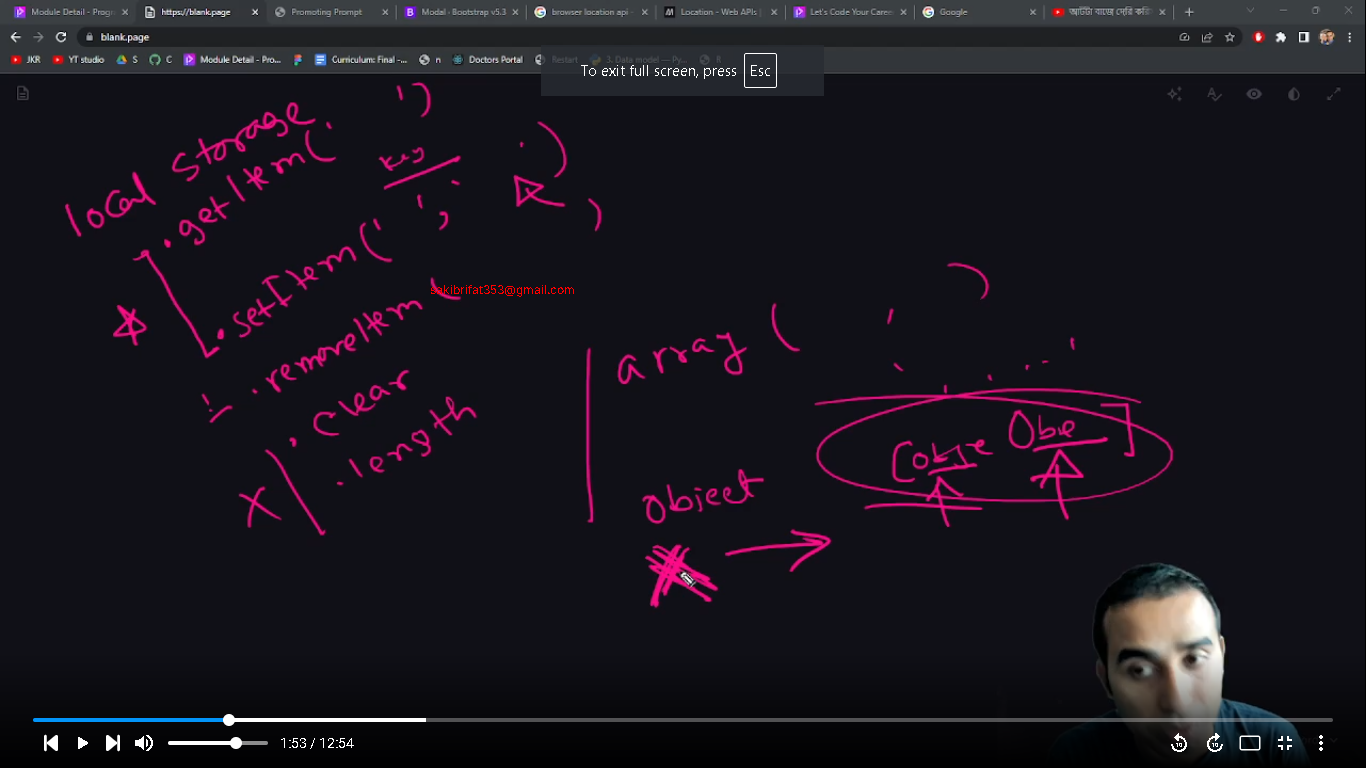 Module Detail - Progra
https://blank.page
Promoting Prompt
Modal · Bootstrap v5.3
browser location api -
Location - Web APIs |
Let's Code Your Career
Google
আটটা বাজে দেরি করি
blank.page
JKR
YT studio
S
C
Module Detail - Pro...
Curriculum: Final -...
n
Doctors Portal
Restart
3. Data model — Py...
R
To exit full screen, press Esc
local Storage
.getItem(' ')
key
.setItem(' ', )
.removeItem(
sakibrifat353@gmail.com
.clear
.length
array ( )
[obje Obje]
object
1:53 / 12:54
10
10